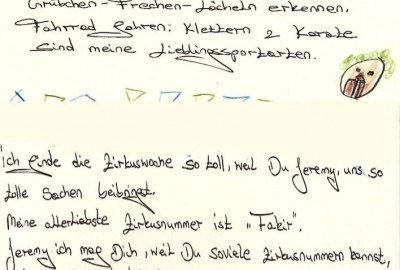 Grübchen-Frechen-Lächeln erkennen.
Fahrrad fahren, Klettern & Karate
sind meine Lieblingssportarten.
ich finde die Zirkuswoche so toll, weil Du Jeremy, uns so
tolle Sachen beibringst.
Meine allerliebste Zirkusnummer ist "Fakir".
Jeremy ich mag Dich, weil Du soviele Zirkusnummern kannst,